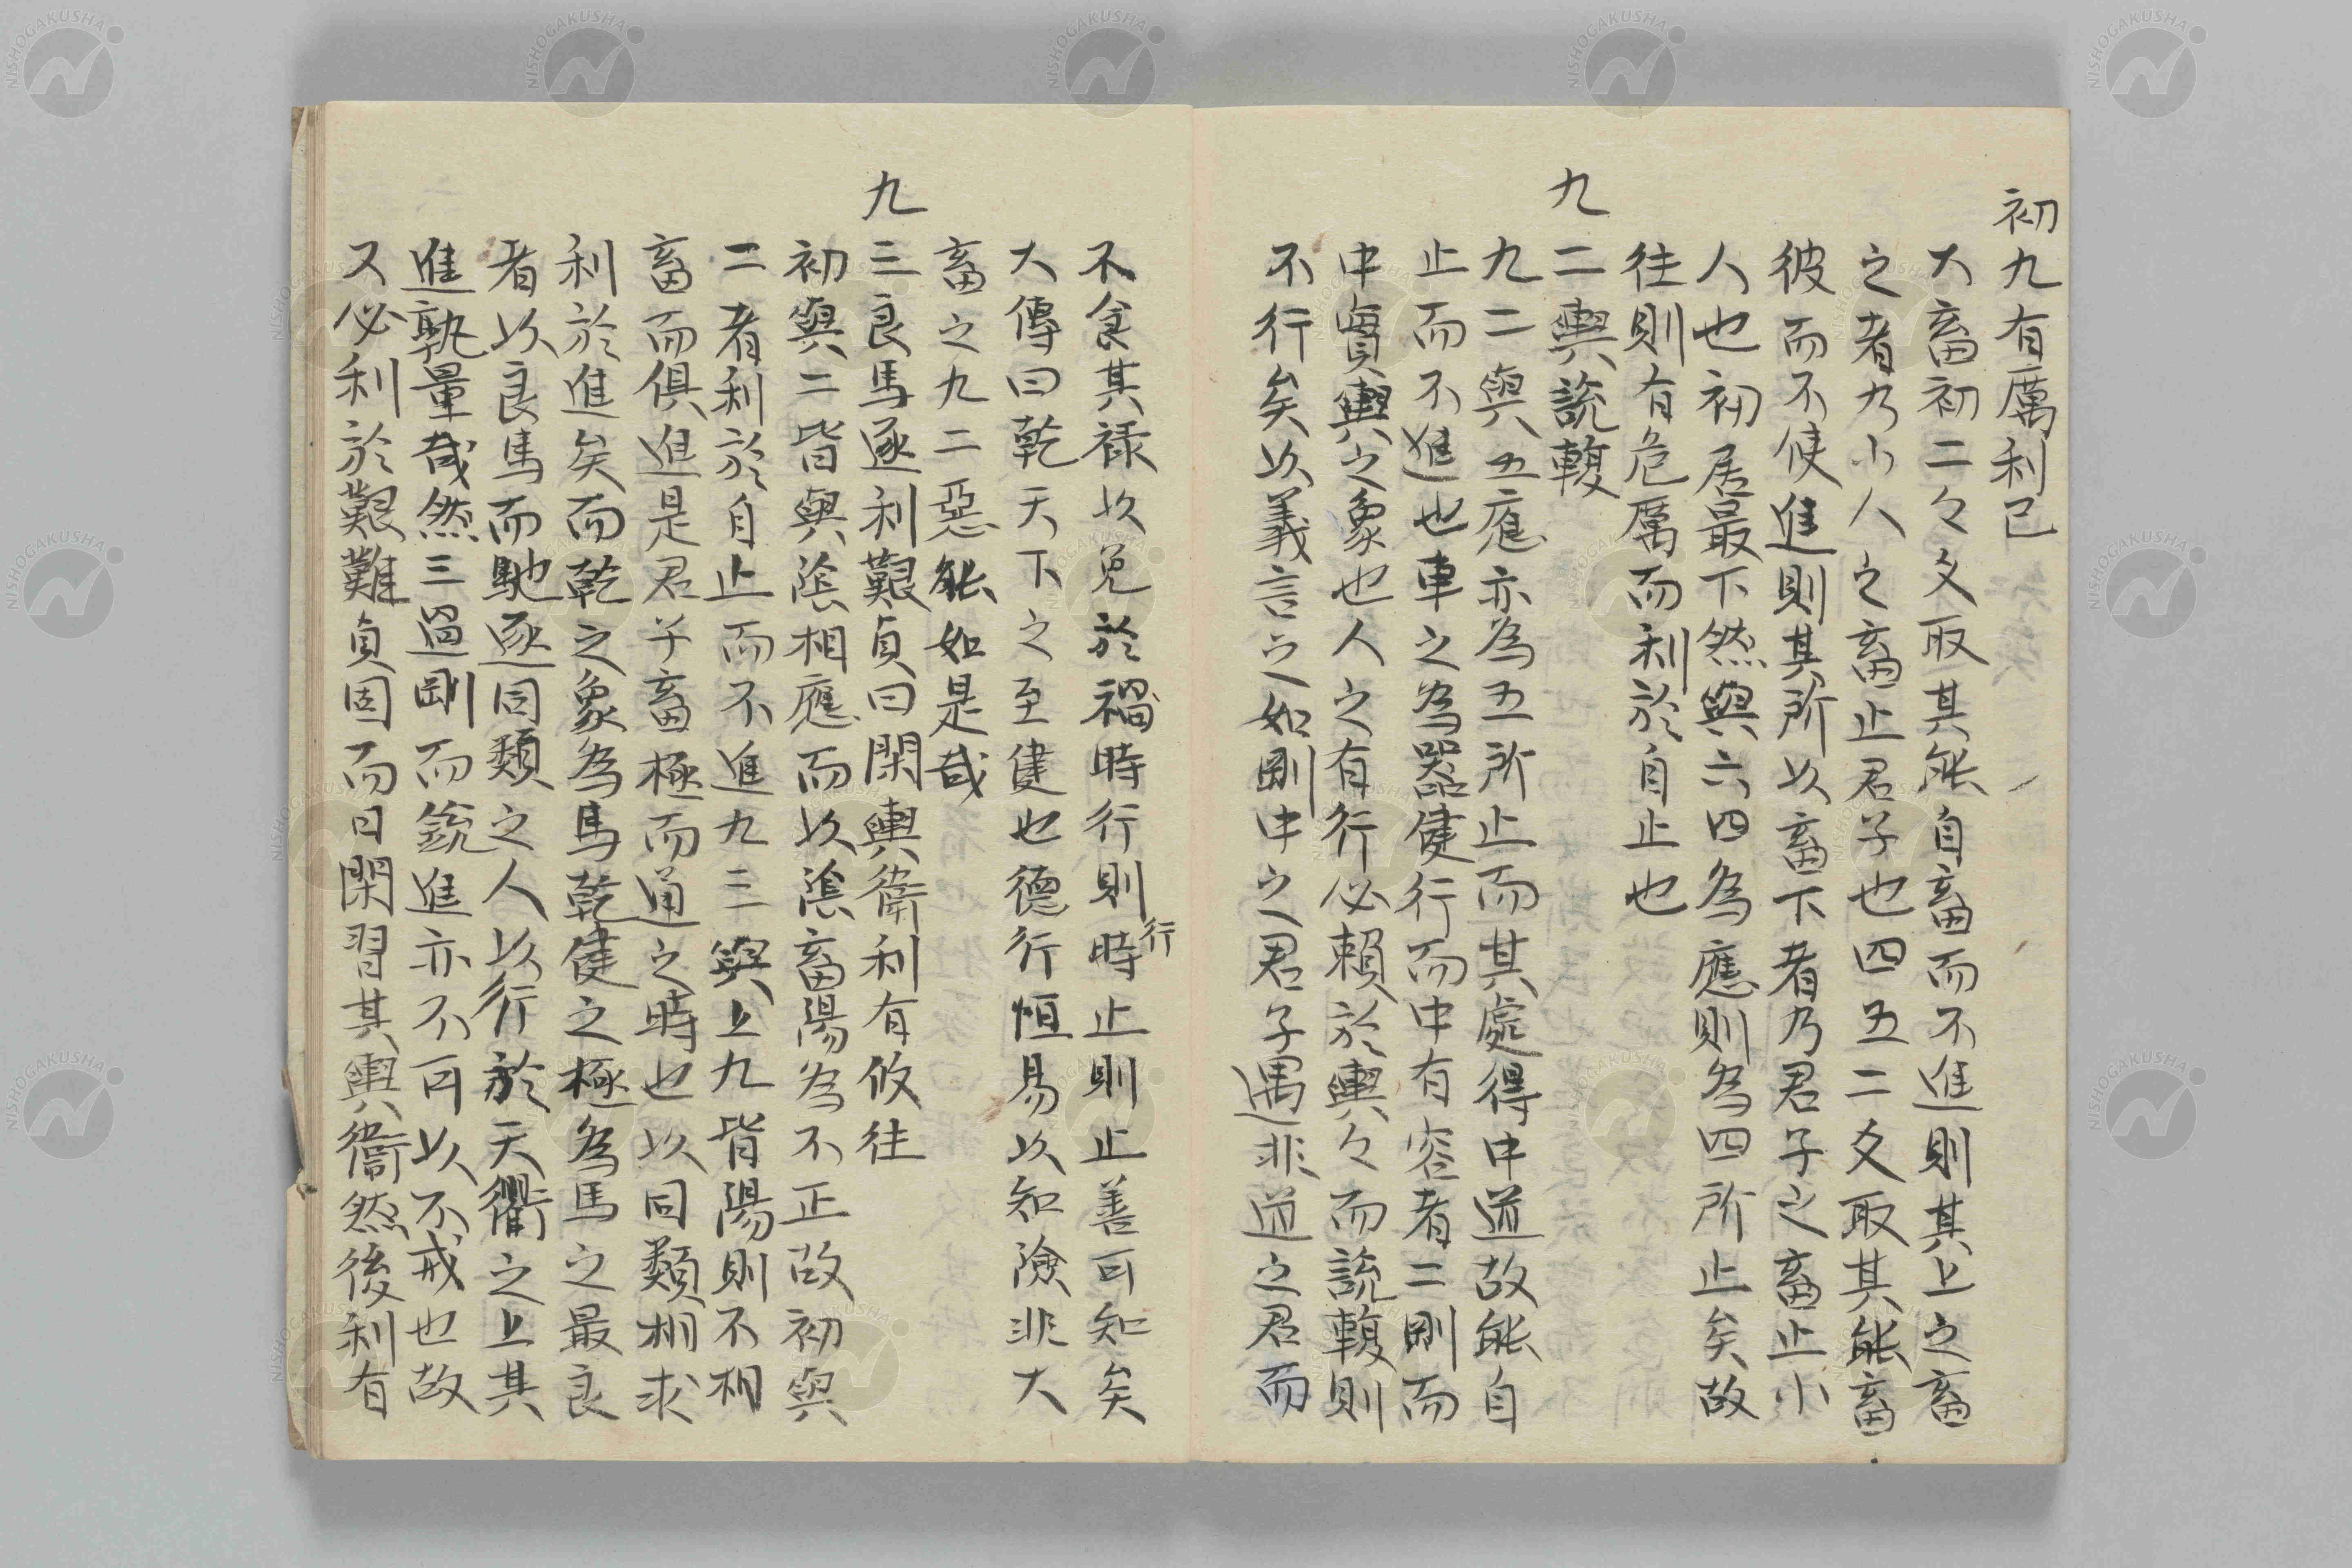 初九有厲利已
大畜初二々爻取其能自畜而不進則其上之畜
之者乃小人之畜止君子也四五二爻取其能畜
彼而不使進則其所以畜下者乃君子之畜止小
人也初居最下然與六四為應則為四所止矣故
往則有危厲而利於自止也
九二輿說輹
九二與五應亦為五所止而其處得中道故能自
止而不進也車之為器健行而中有容者二剛而
中實輿之象也人之有行必賴於輿々而說輹則
不行矣以義言之如剛中之君子遇非道之君而
不食其祿以免於禍時行則行時止則止善可知矣
大傳曰乾天下之至健也德行恒易以知險非大
畜之九二惡能如是哉
九三良馬逐利艱貞曰閑輿衛利有攸往
初與二皆與陰相應而以陰畜陽為不正故初與
二者利於自止而不進九三與上九皆陽則不相
畜而俱進是君子畜極而通之時也以同類相求
利於進矣而乾之象為馬乾健之極為馬之最良
者以良馬而馳逐同類之人以行於天衢之上其
進孰量哉然三過剛而銳進亦不可以不戒也故
又必利於艱難貞固而日閑習其輿衛然後利有
NISHOGAKUSHA